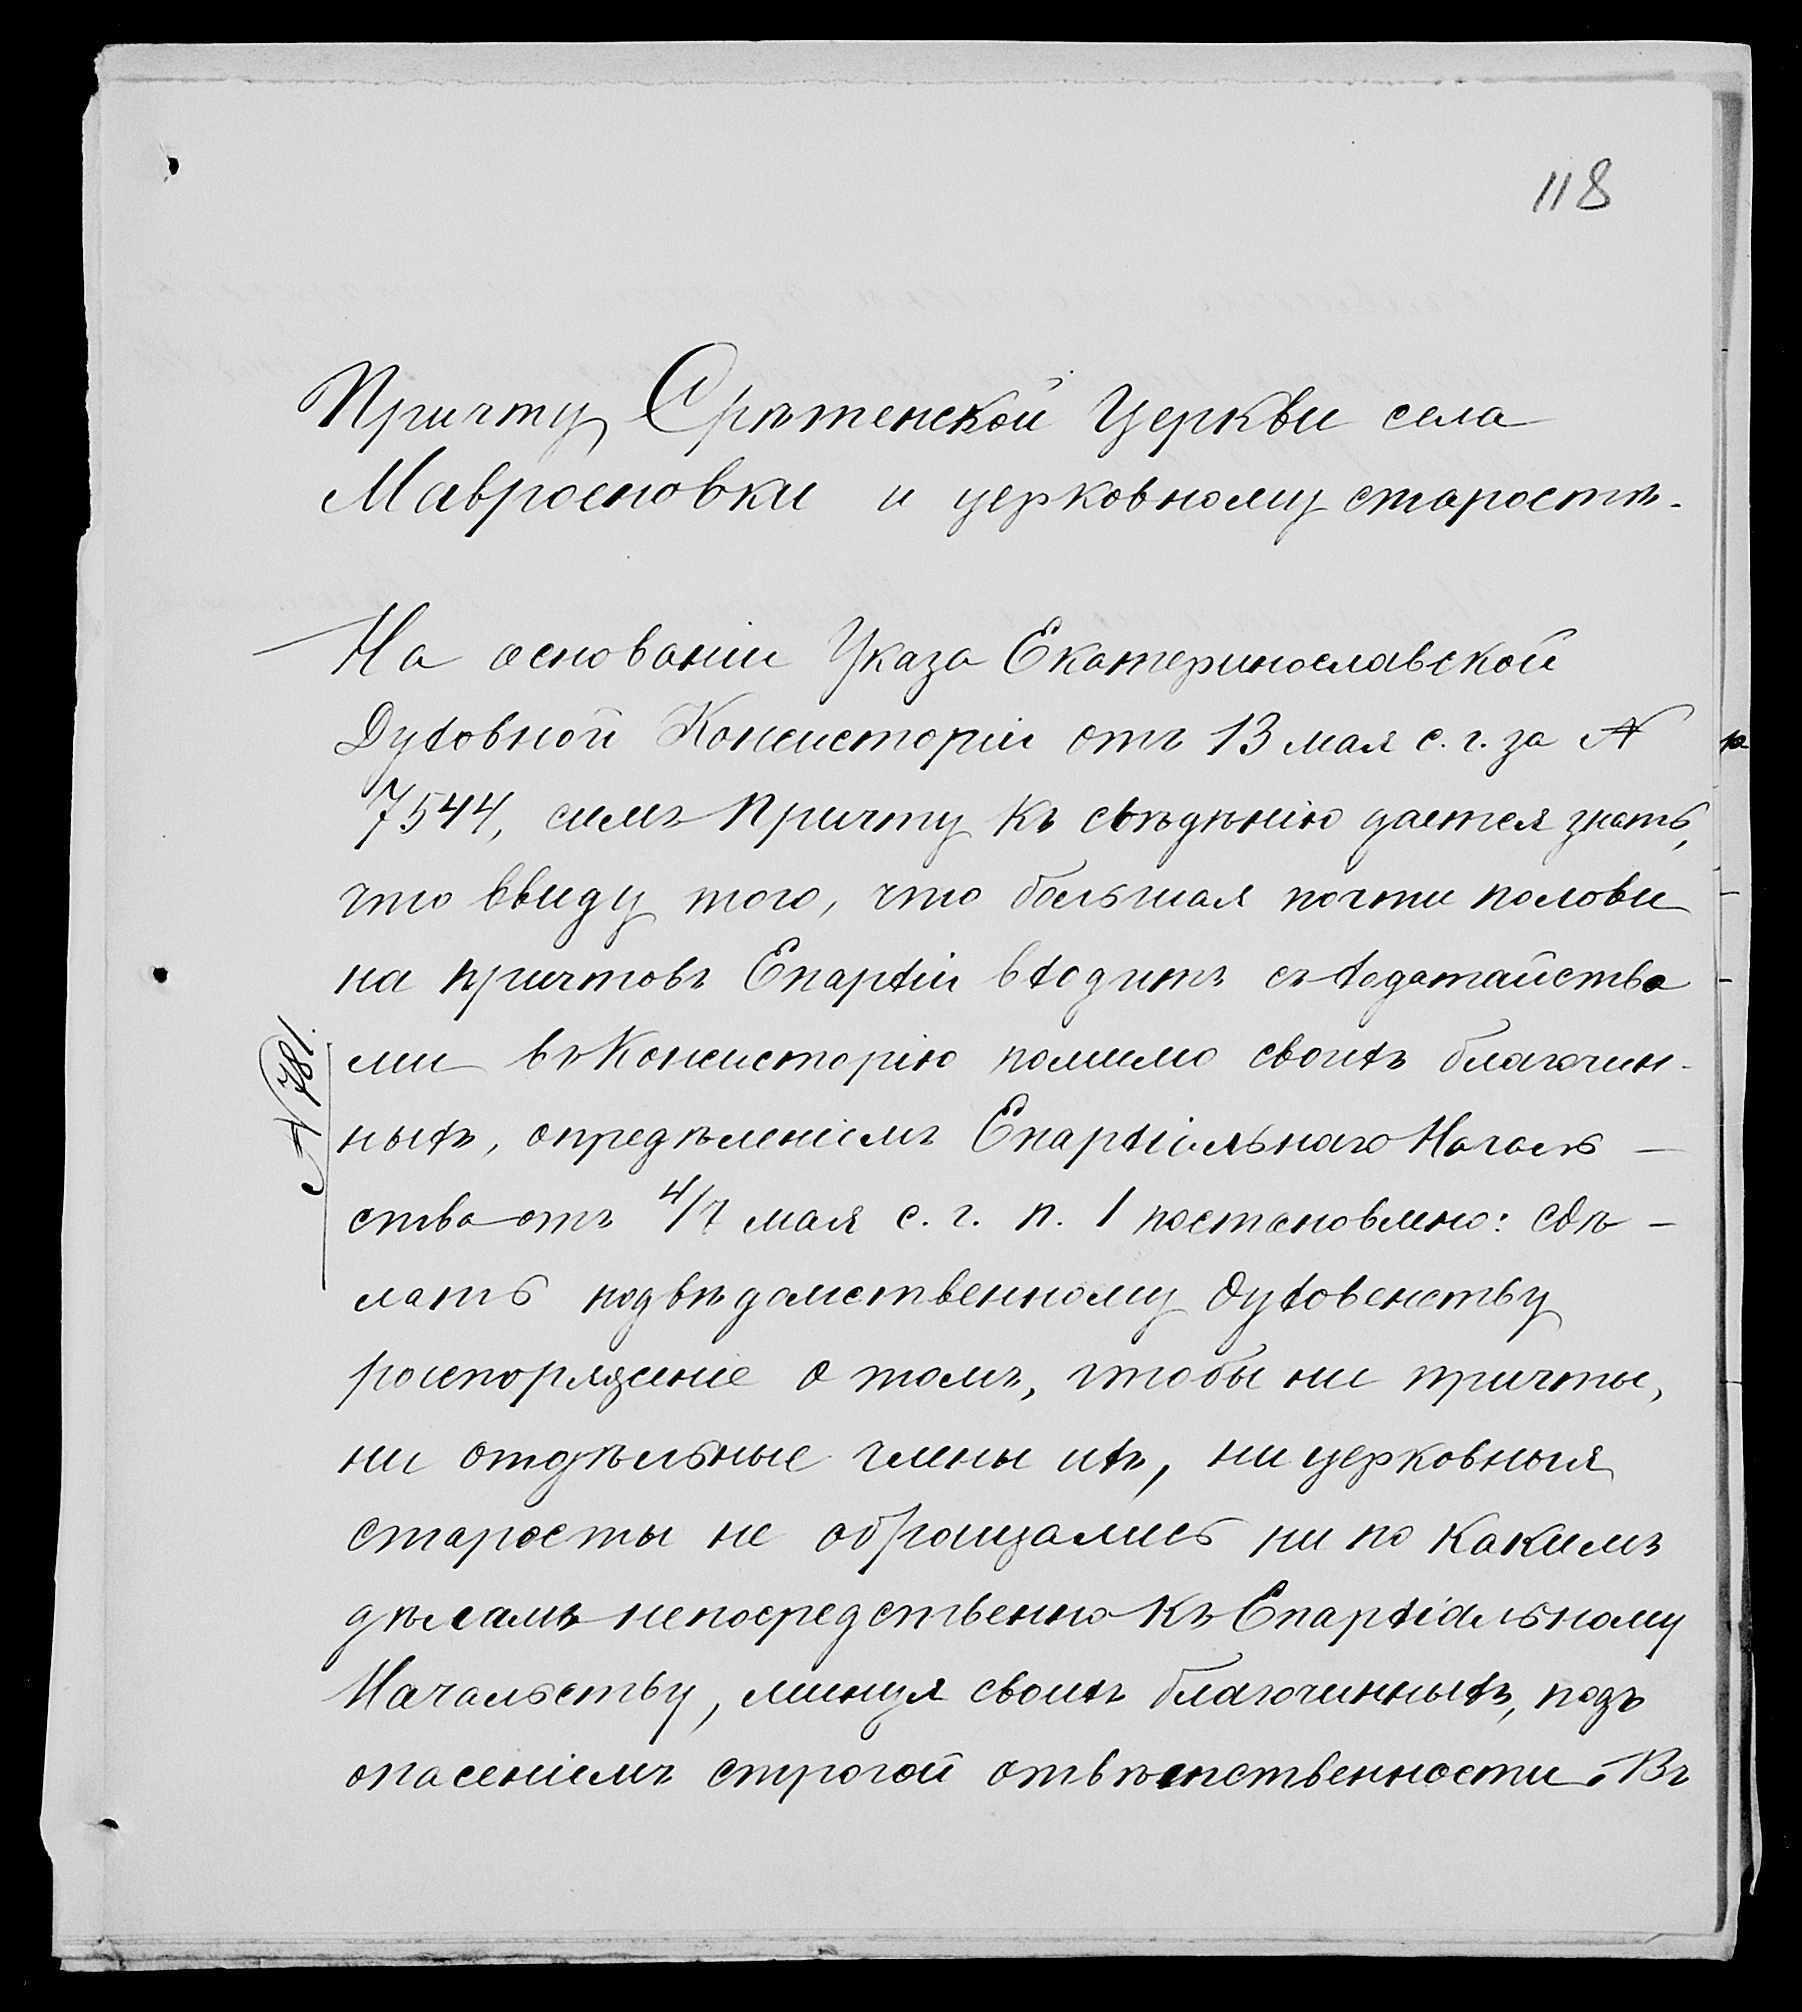 118
Причту Срѣтенской Церкви села
Мавроеновки и церковному старостѣ.
На основаніи Указа Екатеринославской
Духовной Консисторіи отъ 13 мая с. г. за №
7544, симъ Причту къ свѣдѣнію дается знать,
что ввиду того, что большая почти полови
на причтовъ Епархіи входитъ съ ходатайства
ми въ Консисторію помимо своихъ благочин-
ныхъ, опредѣленіемъ Епархіальнаго Началь-
ства отъ 4/7 мая с. г. п. 1 постановлено: сдѣ-
лать подвѣдомственному духовенству
роспоряженіе о томъ, чтобы ни причты,
ни отдѣльные члены ихъ, ни церковныя
старосты не обращались ни по какимъ
дѣламъ непосредственно къ Епархіальному
Начальству, минуя своихъ благочинныхъ, подъ
опасеніемъ строгой отвѣтственности. Въ
№ 781.